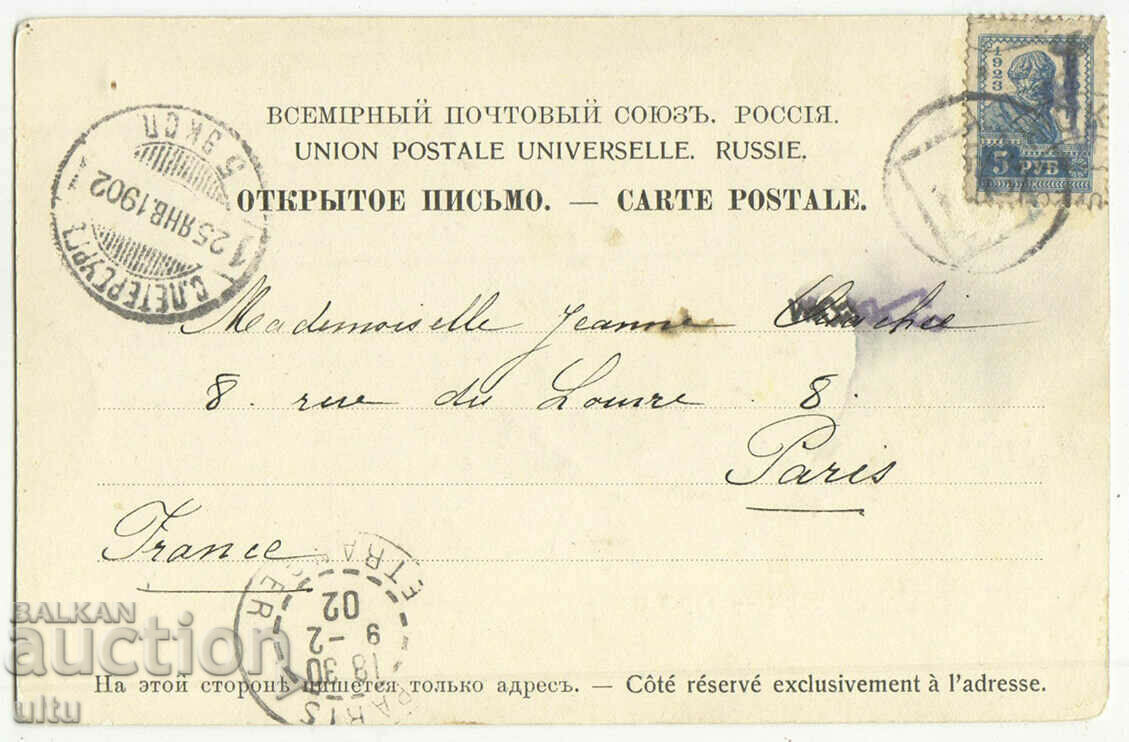 1923
5 РУБ
ВСЕМІРНЫЙ ПОЧТОВЫЙ СОЮЗЪ. РОССІЯ.
UNION POSTALE UNIVERSELLE. RUSSIE.
ОТКРЫТОЕ ПИСЬМО. — CARTE POSTALE.
С.ПЕТЕРБУРГЪ
1 25 ЯНВ. 1902
5 ЭКСП
Mademoiselle Jeanne
8. rue du Louvre. 8.
Paris
France
PARIS ETRANGER
18 30
9 - 2
02
На этой сторонѣ пишется только адресъ. — Côté réservé exclusivement à l'adresse.
BALKAN
auction
ultu